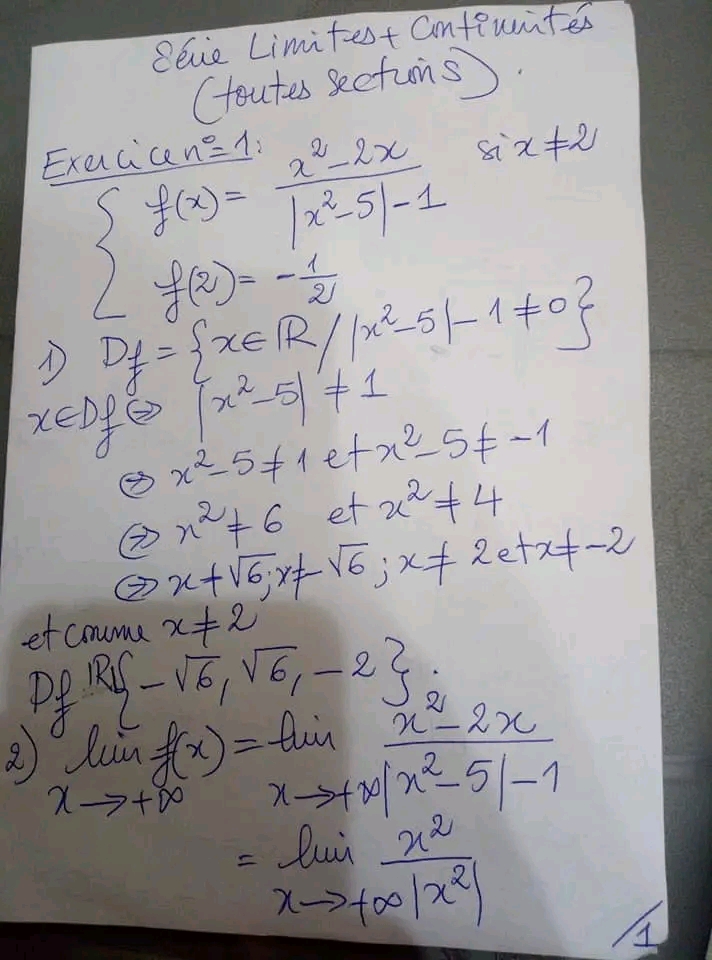 Série Limites + Continuités
(toutes sections).
Exercice n°=1:
f(x) = (x²-2x)/(|x²-5|-1) si x≠2
f(2) = -1/2
1) Df = {x∈ℝ / |x²-5|-1≠0}
x∈Df ⇔ |x²-5| ≠ 1
⇔ x²-5≠1 et x²-5≠-1
⇔ x²≠6 et x²≠4
⇔ x≠√6; x≠-√6; x≠2 et x≠-2
et comme x≠2
Df ℝ\{-√6, √6, -2}.
2) lim f(x) = lim (x²-2x)/(|x²-5|-1)
x→+∞ x→+∞
= lim x²/|x²|
x→+∞
/1